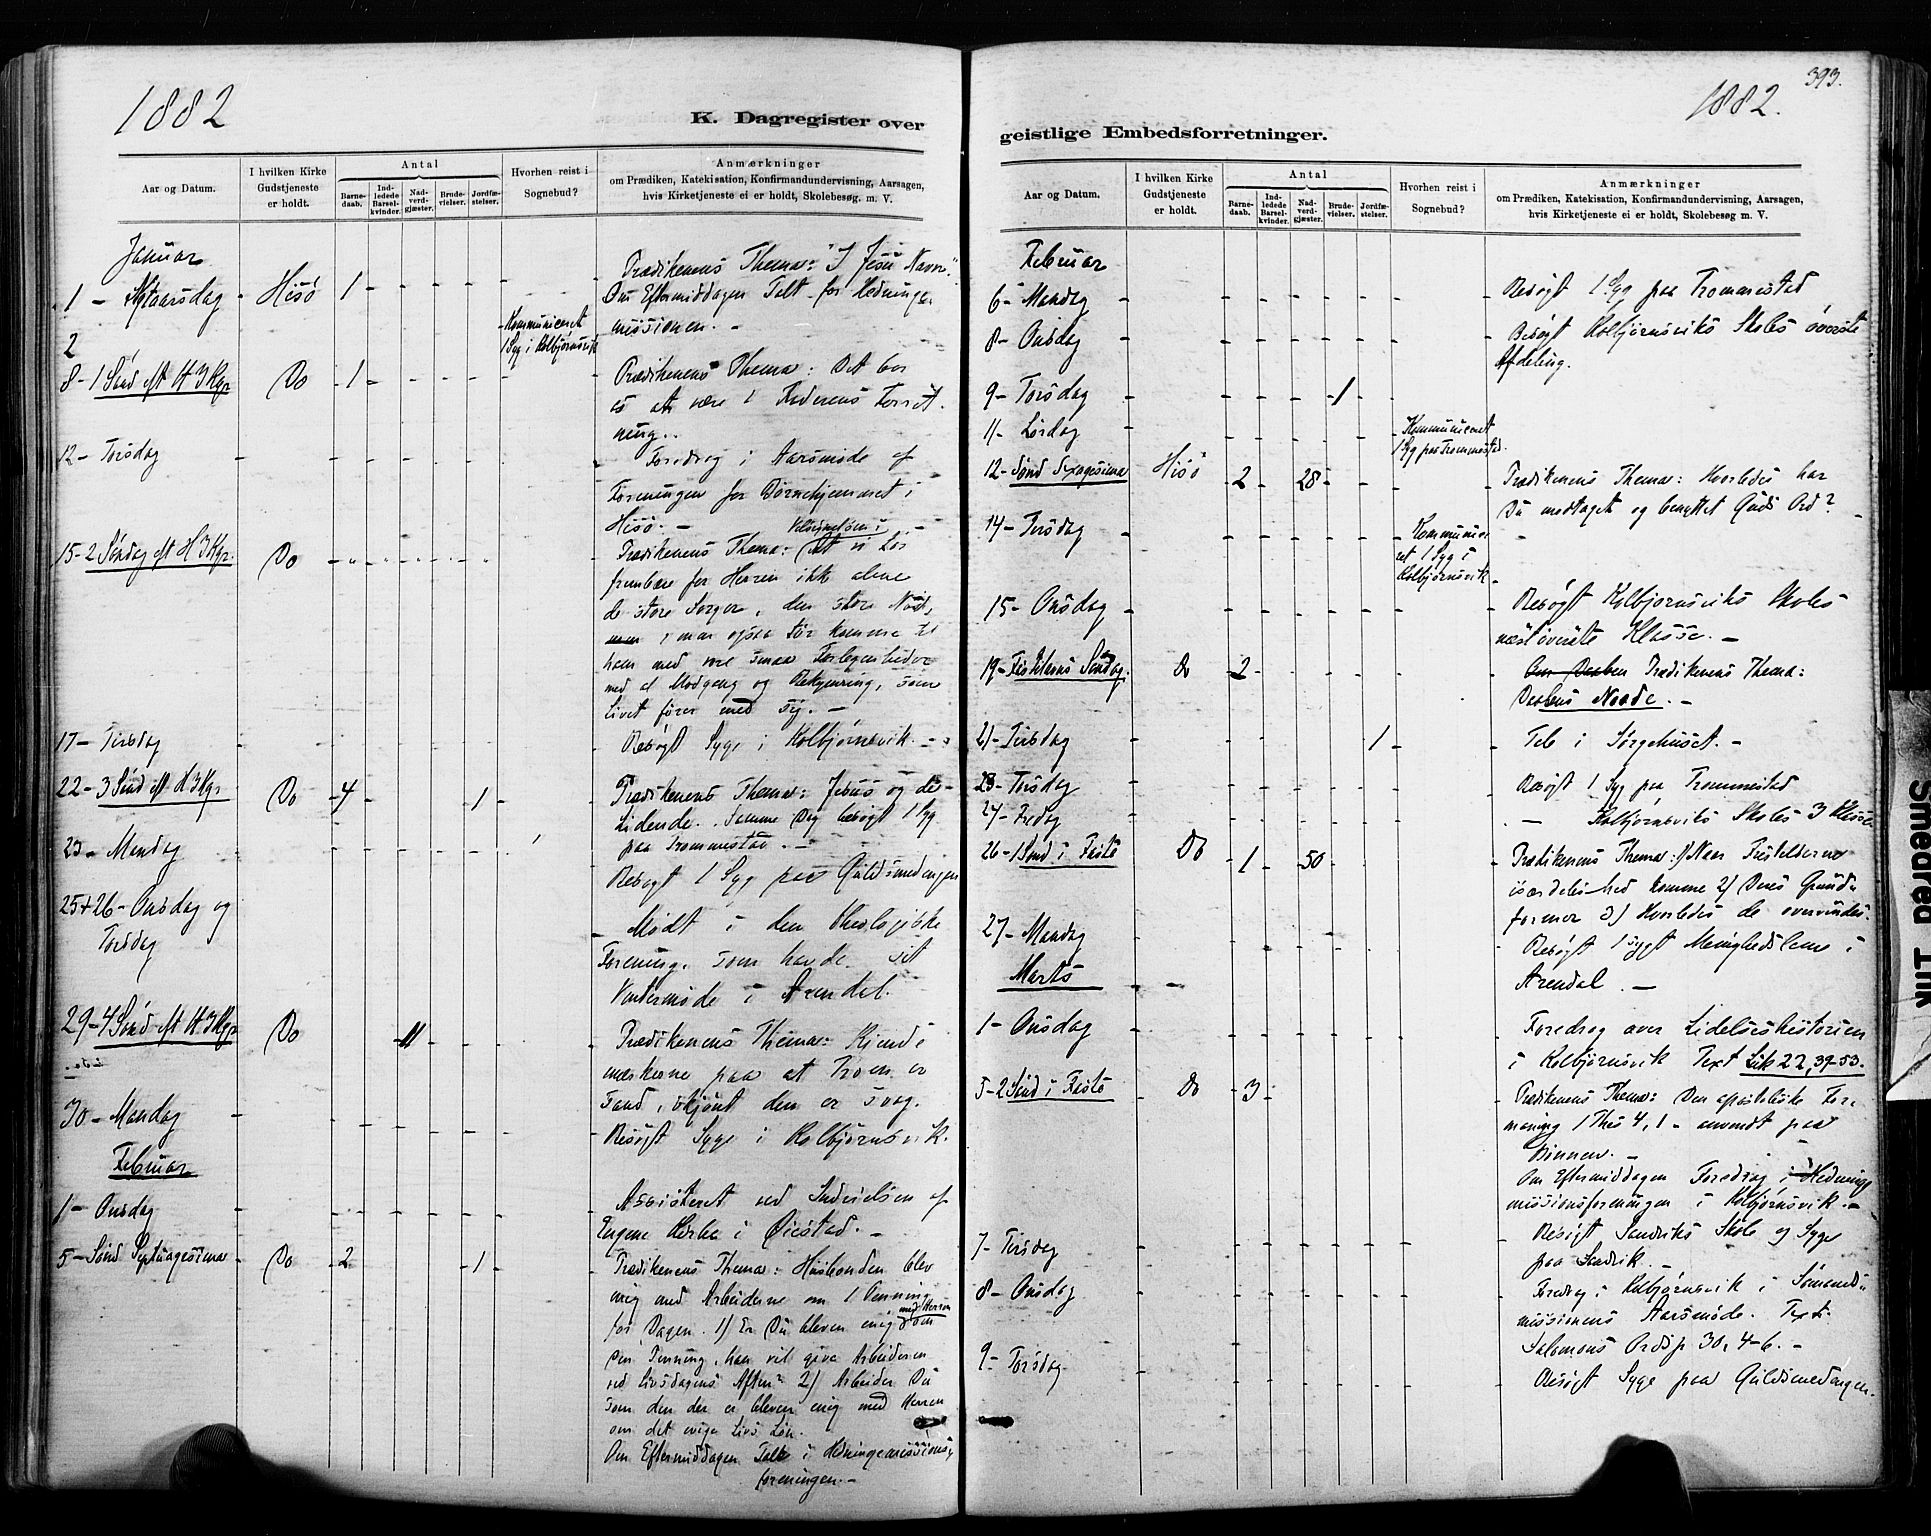 1882
K. Dagregister over
Aar og Datum.
I hvilken Kirke Gudstjeneste er holdt.
Antal
Barnedaab.
Indledede Barselkvinder.
Nadverdgjæster.
Brudevielser.
Jordfæstelser.
Hvorhen reist i Sognebud?
Anmærkninger
om Prædiken, Katekisation, Konfirmandundervisning, Aarsagen,
hvis Kirketjeneste ei er holdt, Skolebesøg m. V.
Januar
1 - Nytaarsdag - Hisö 1 - - - - Prædikenens Thema: "I Jesu Navn".
Om Eftermiddagen Talt for Hedninge
missionen. -
2 - Kommuniceret
1 Syg i Kolbjörnsvik
8 - 1 Sönd eft H 3 Kgr Do 1 - Prædikenens Thema: Det bør
os at være i Faderens Forret
ning.
12 - Torsdag - Foredrag i Aarsmöde af
Foreningen for Börnehjemmet i
Hisö. -
15 - 2 Söndag eft H 3 Kgr. Do Prædikenens Thema: Velsignelsen i, at vi tör
frembære for Herren ikke alene
de store Sorger, den store Nöd,
men man ogsaa tör komme til
ham med vore smaa Forlegenheder
med al Modgang og Bekymring, som
Livet förer med sig. -
17 - Tirsdag - Besögt Syge i Kolbjörnsvik. -
22 - 3 Sönd eft H 3 Kgr Do 4 - 1 - Prædikenens Thema: Jesus og de
Lidende. Samme Dag besögt 1 Syg
paa Trommestad. -
23 - Mandag - Besögt 1 Syg paa Guldsmedengen
25 + 26 - Onsdag og
Torsdag
- Mödt i den theologiske
Forening, som havde sit
Vintermöde i Arendal.
29 - 4 Sönd eft H 3 Kgr Do 11 - - - Prædikenens Thema: Kjende
mærkerne paa at Troen er
sand, skjönt den er svag.
30 - Mandag - Besögt Syge i Kolbjörnsvik.
Februar
1 - Onsdag - Assisteret ved Indvielsen af
Engene Kirke i Öiestad. -
5 - Sönd Septuagesima Do 2 - 1 - Prædikenens Thema: Husbonden blev
enig med Arbeiderne om 1 Penning
for Dagen. 1) Er Du bleven enig med Herren om
den Penning, han vil give Arbeideren
ved Livsdagens Aften? 2) Arbeider Du
som den der er bleven enig med Herren
om det evige Livs Lön.
Om Eftermiddagen Tale i Hedningemissions-
foreningen. -
393.
1882.
geistlige Embedsforretninger.
Aar og Datum.
I hvilken Kirke Gudstjeneste er holdt.
Antal
Barnedaab.
Indledede Barselkvinder.
Nadverdgjæster.
Brudevielser.
Jordfæstelser.
Hvorhen reist i Sognebud?
Anmærkninger
om Prædiken, Katekisation, Konfirmandundervisning, Aarsagen,
hvis Kirketjeneste ei er holdt, Skolebesøg m. V.
Februar
6 - Mandag - Besögt 1 Syg paa Trommestad
8 - Onsdag - Besögt Kolbjörnsviks Skoles överste
Afdeling.
9 - Torsdag - 1 -
11 - Lördag - Kommuniceret
1 Syg paa Trommestad.
12 - Sönd Sexagesima Hisö 2 - 28 - Prædikenens Thema: Hvorledes har
Du modtaget og benyttet Guds Ord?
14 - Tirsdag - Kommunice
ret 1 Syg i
Kolbjörnsvik -
15 - Onsdag - Besögt Kolbjörnsviks Skoles
næstöverste Klasse. -
19 - Fastelavns Söndag. Do 2 - Om Daaben Prædikenens Thema:
Daabens Naade. -
21 - Tirsdag - 1 - Tale i Sörgehuset. -
23 - Torsdag - Besögt 1 Syg paa Trommestad
24 - Fredag - Kolbjörnsviks Skoles 3 Klasse
26 - 1 Sönd i Faste Do 1 - 50 - Prædikenens Thema: 1) Naar Fristelserne
især komme 2) Deres Grund
former 3) Hvorledes de overvindes.
27 - Mandag - Besögt 1 sygt Menighedslem i
Arendal. -
Marts
1 - Onsdag - Foredrag over Lidelseshistorien
i Kolbjörnsvik Text Luk 22, 39-53.
5 - 2 Sönd i Faste Do 3 - Prædikenens Thema: Den apostoliske For
maning 1 Thes 4, 1 - anvendt paa
Om Eftermiddagen Foredrag i Hedninge
missionsforeningen i Kolbjörnsvik. -
7 - Tirsdag - Besögt Sandviks Skole og Syge
paa Sandvik. -
8 - Onsdag - Foredrag i Kolbjörnsvik i Sömands
missionens Aarsmöde. Text:
Salomons Ordsp 30, 4-6. -
9 - Torsdag - Besögt Syge paa Guldsmedengen.
Smedred Tlik